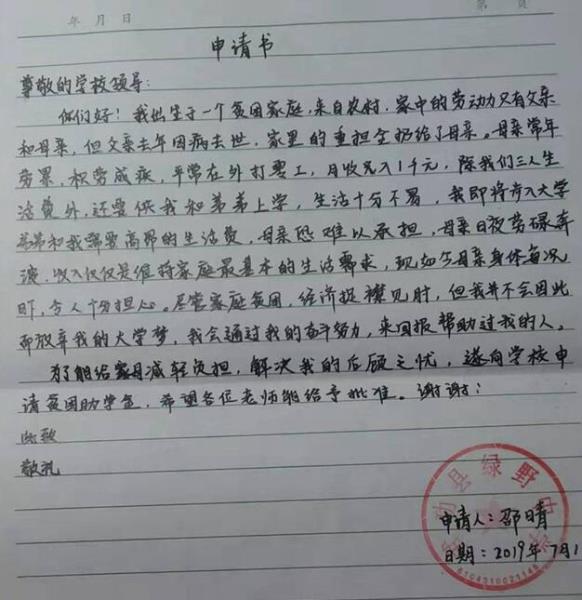 年 月 日
第 页
申请书
尊敬的学校领导：
你们好！我出生于一个贫困家庭，来自农村，家中的劳动力只有父亲
和母亲，但父亲去年因病去世，家里的重担全扔给了母亲。母亲常年
劳累，积劳成疾，平常在外打零工，月收入1千元，除我们三人生
活费外，还要供我和弟弟上学，生活十分不易，我即将步入大学
弟弟和我需要高昂的生活费，母亲恐难以承担，母亲日夜劳碌奔
波，收入仅仅是维持家庭最基本的生活需求，现如今母亲身体每况
日下，令人十分担心。尽管家庭贫困，经济捉襟见肘，但我并不会因此
而放弃我的大学梦，我会通过我的奋斗努力，来回报帮助过我的人。
为了能给家母减轻负担，解决我的后顾之忧，遂向学校申
请贫困助学金，希望各位老师能给予批准。谢谢！
此致
敬礼
县绿野中学
申请人：邵晴
日期：2019年7月1